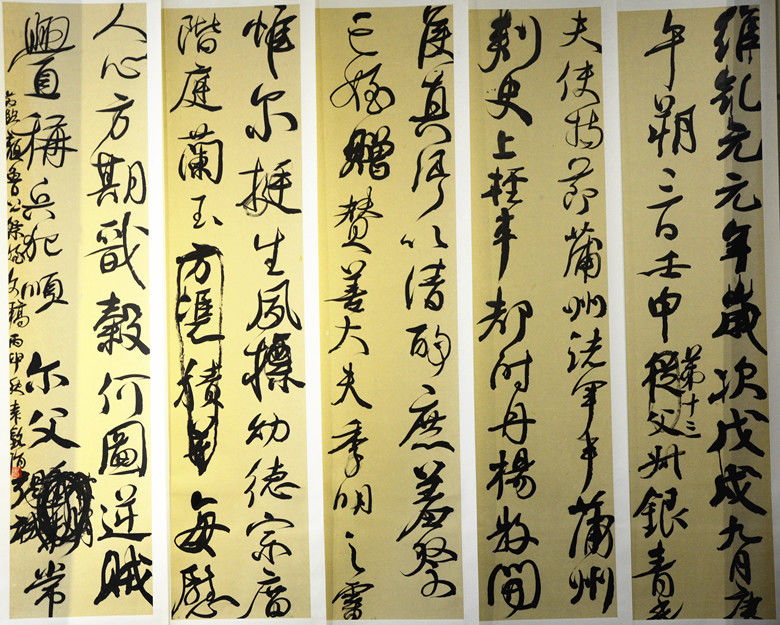 維乾元元年歲次戊戌九月庚
午朔三日壬申第十三從父州銀青光
夫使持節蒲州諸軍事蒲州
刺史上輕車都尉丹楊縣開
侯真卿以清酌庶羞祭
亡姪贈贊善大夫季明之靈
惟尔挺生夙標幼德宗廟
階庭蘭玉方憑積善每慰
人心方期戩穀何圖逆賊
舋稱兵犯順尔父竭誠常
臨顏魯公祭姪文稿丙申秋